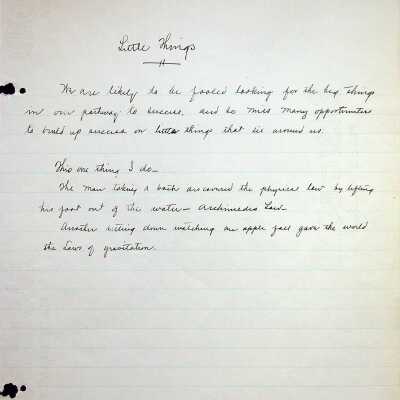 Little Things
We are likely to be fooled looking for the big things
in our pathway to success, and so miss many opportunities
to build up success on little things that lie around us.
This one thing I do—
The man taking a bath discovered the physical law by lifting
his foot out of the water — Archimedes Law—
Another sitting down watching an apple fall gave the world
the Laws of gravitation.